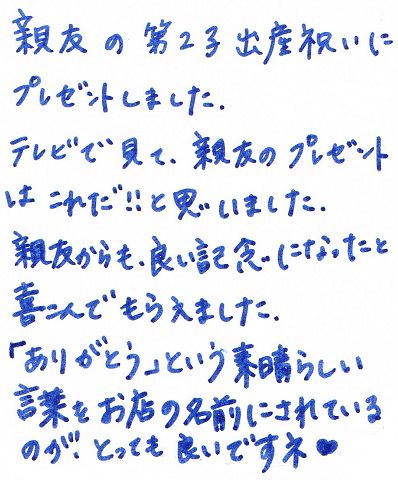 親友の第2子出産祝いに
プレゼントしました.
テレビで見て、親友のプレゼント
はこれだ!!と思いました.
親友からも、良い記念になったと
喜こんでもらえました.
「ありがとう」という素晴らしい
言葉をお店の名前にされている
のが!とっても良いですネ♥